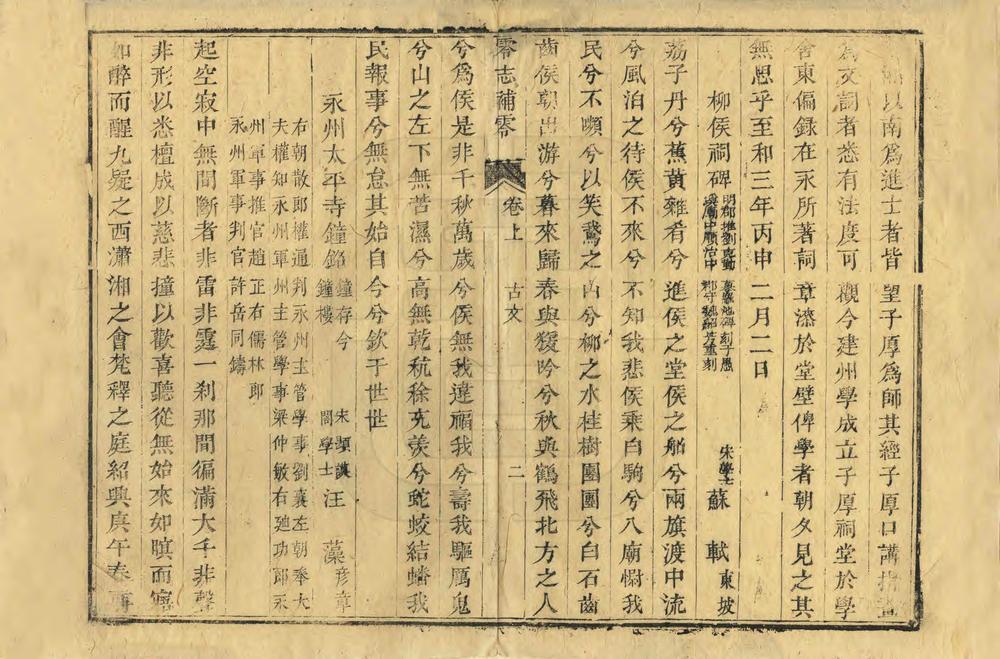 以南爲進士者皆望子厚爲師其經子厚口講指畫
爲文詞者悉有法度可觀今建州學成立子厚祠堂於學
舍東偏録在永所著詞章漆於堂壁俾學者朝夕見之其
無思乎至和三年丙申二月二日
柳侯祠碑 明郡推劉克勤 愚廟中順治中郡守魏紹芳重刻 宋學士 蘇軾 東坡
荔子丹兮蕉黄雜肴兮進侯之堂侯之船兮兩旗渡中流
兮風泊之待侯不來兮不知我悲侯乘白駒兮入廟慰我
民兮不嚬兮以笑鵞之山兮柳之水桂樹團團兮白石齒
齒侯朝出游兮暮來歸春與猨吟兮秋與鶴飛北方之人
零志補零 卷上 古文 二
兮爲侯是非千秋萬歲兮侯無我違福我兮壽我驅厲鬼
兮山之左下無苦濕兮高無乾秔稌充羨兮蛇蛟結蟠我
民報事兮無怠其始自今兮欽于世世
永州太平寺鐘銘 鐘存今鐘樓 宋顯謨閣學士 汪藻 彦章
右朝散郎權通判永州主管學事劉襄左朝奉大
夫權知永州軍州主管學事梁仲敏右廸功郎永
州軍事推官趙正右儒林郎
永州軍事判官許岳同鑄
起空寂中無間斷者非雷非霆一刹那間徧滿大千非聲
非形以悉檀成以慈悲撞以歡喜聽從無始來如暝而寤
如醉而醒九疑之西瀟湘之會梵釋之庭紹興庚午春